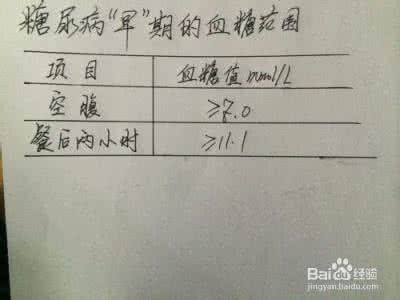 糖尿病“早”期的血糖范围
项目 血糖值mmol/L
空腹 ≥7.0
餐后两小时 ≥11.1
Baidu经验
jingyan.baidu.com